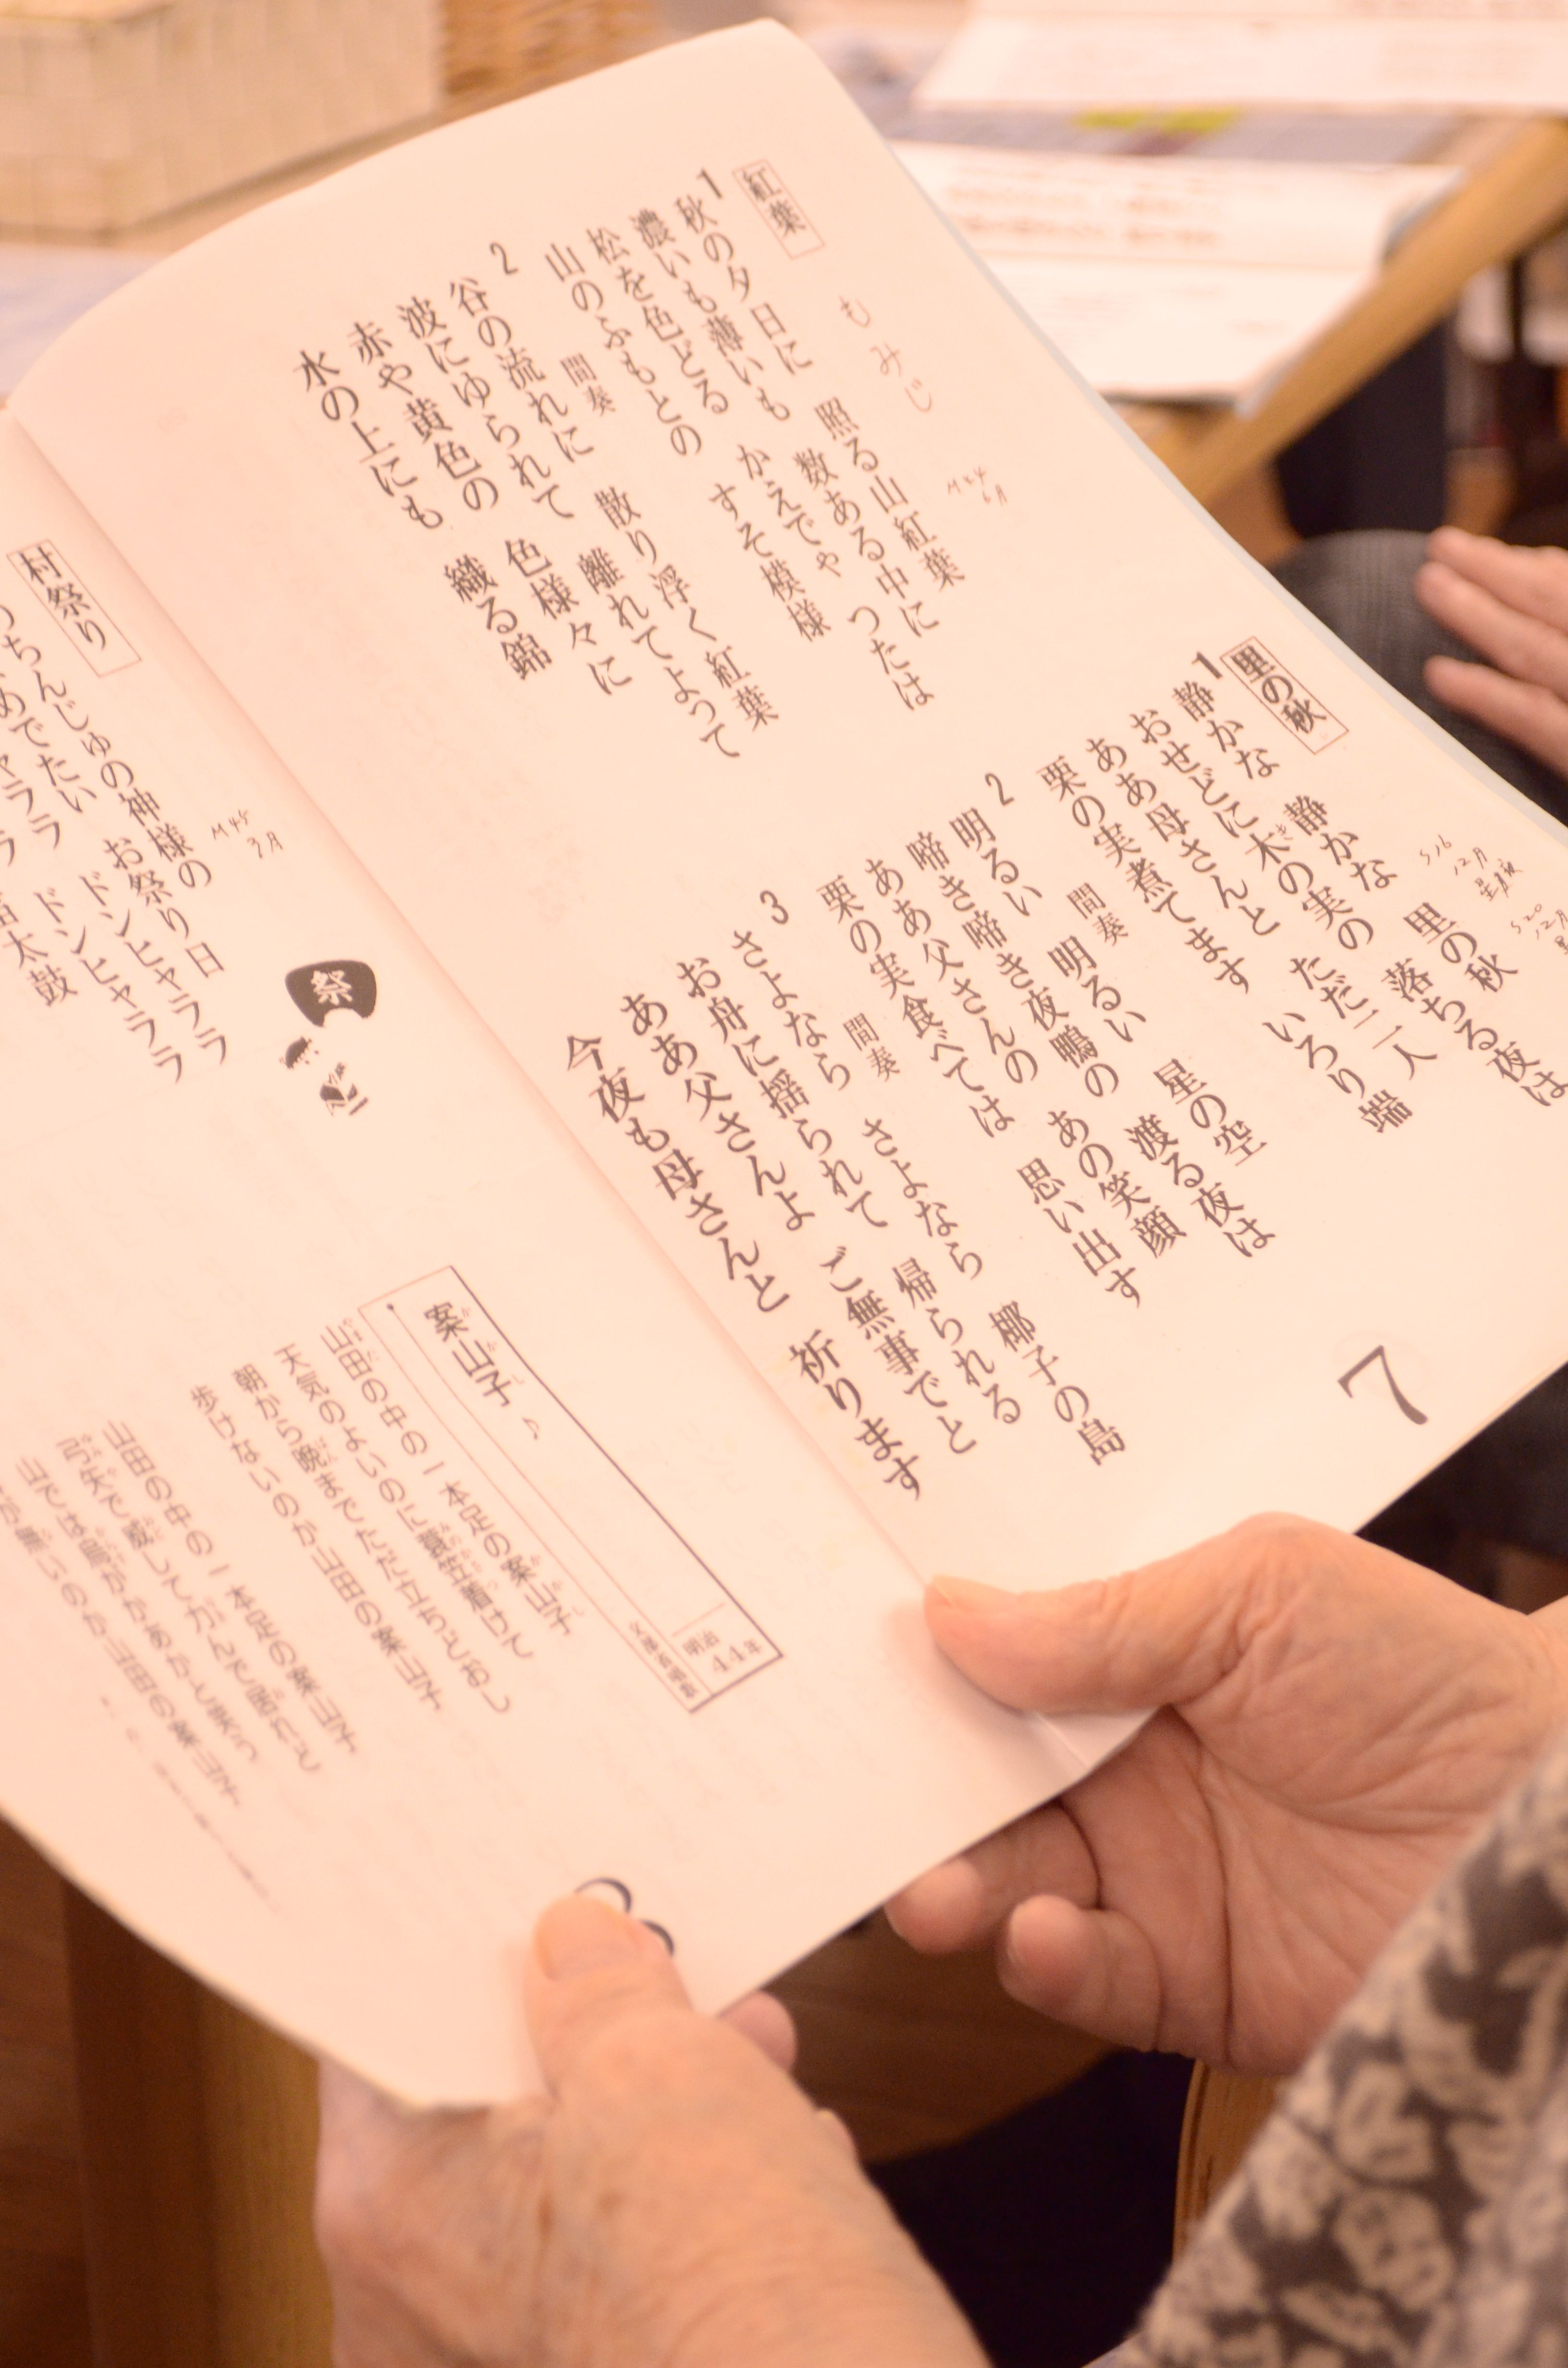 紅葉
もみじ
M44
6月
1
秋の夕日に 照る山紅葉
濃いも薄いも 数ある中に
松を色どる かえでや つたは
山のふもとの すそ模様
間奏
2
谷の流れに 散り浮く紅葉
波にゆられて 離れてよって
赤や黄色の 色様々に
水の上にも 織る錦
里の秋
S16
12月
星月夜
S20
12月
1
静かな 静かな 里の秋
おせどに木の実の 落ちる夜は
ああ母さんと ただ二人
栗の実煮てます いろり端
間奏
2
明るい 明るい 星の空
啼き啼き夜鴨の 渡る夜は
ああ父さんの あの笑顔
栗の実食べては 思い出す
間奏
3
さよなら さよなら 椰子の島
お舟に揺られて 帰られる
ああ父さんよ ご無事でと
今夜も母さんと 祈ります
7
村祭り
M45
3月
ちんじゅの神様の
めでたい お祭り日
ドンヒャララ
ドンヒャララ
太鼓
祭
案山子
明治
44年
文部省唱歌
山田の中の一本足の案山子
天気のよいのに蓑笠着けて
朝から晩までただ立ちどおし
歩けないのか山田の案山子
山田の中の一本足の案山子
弓矢で威して力んで居れど
山では烏がかあかと笑う
が無いのか山田の案山子